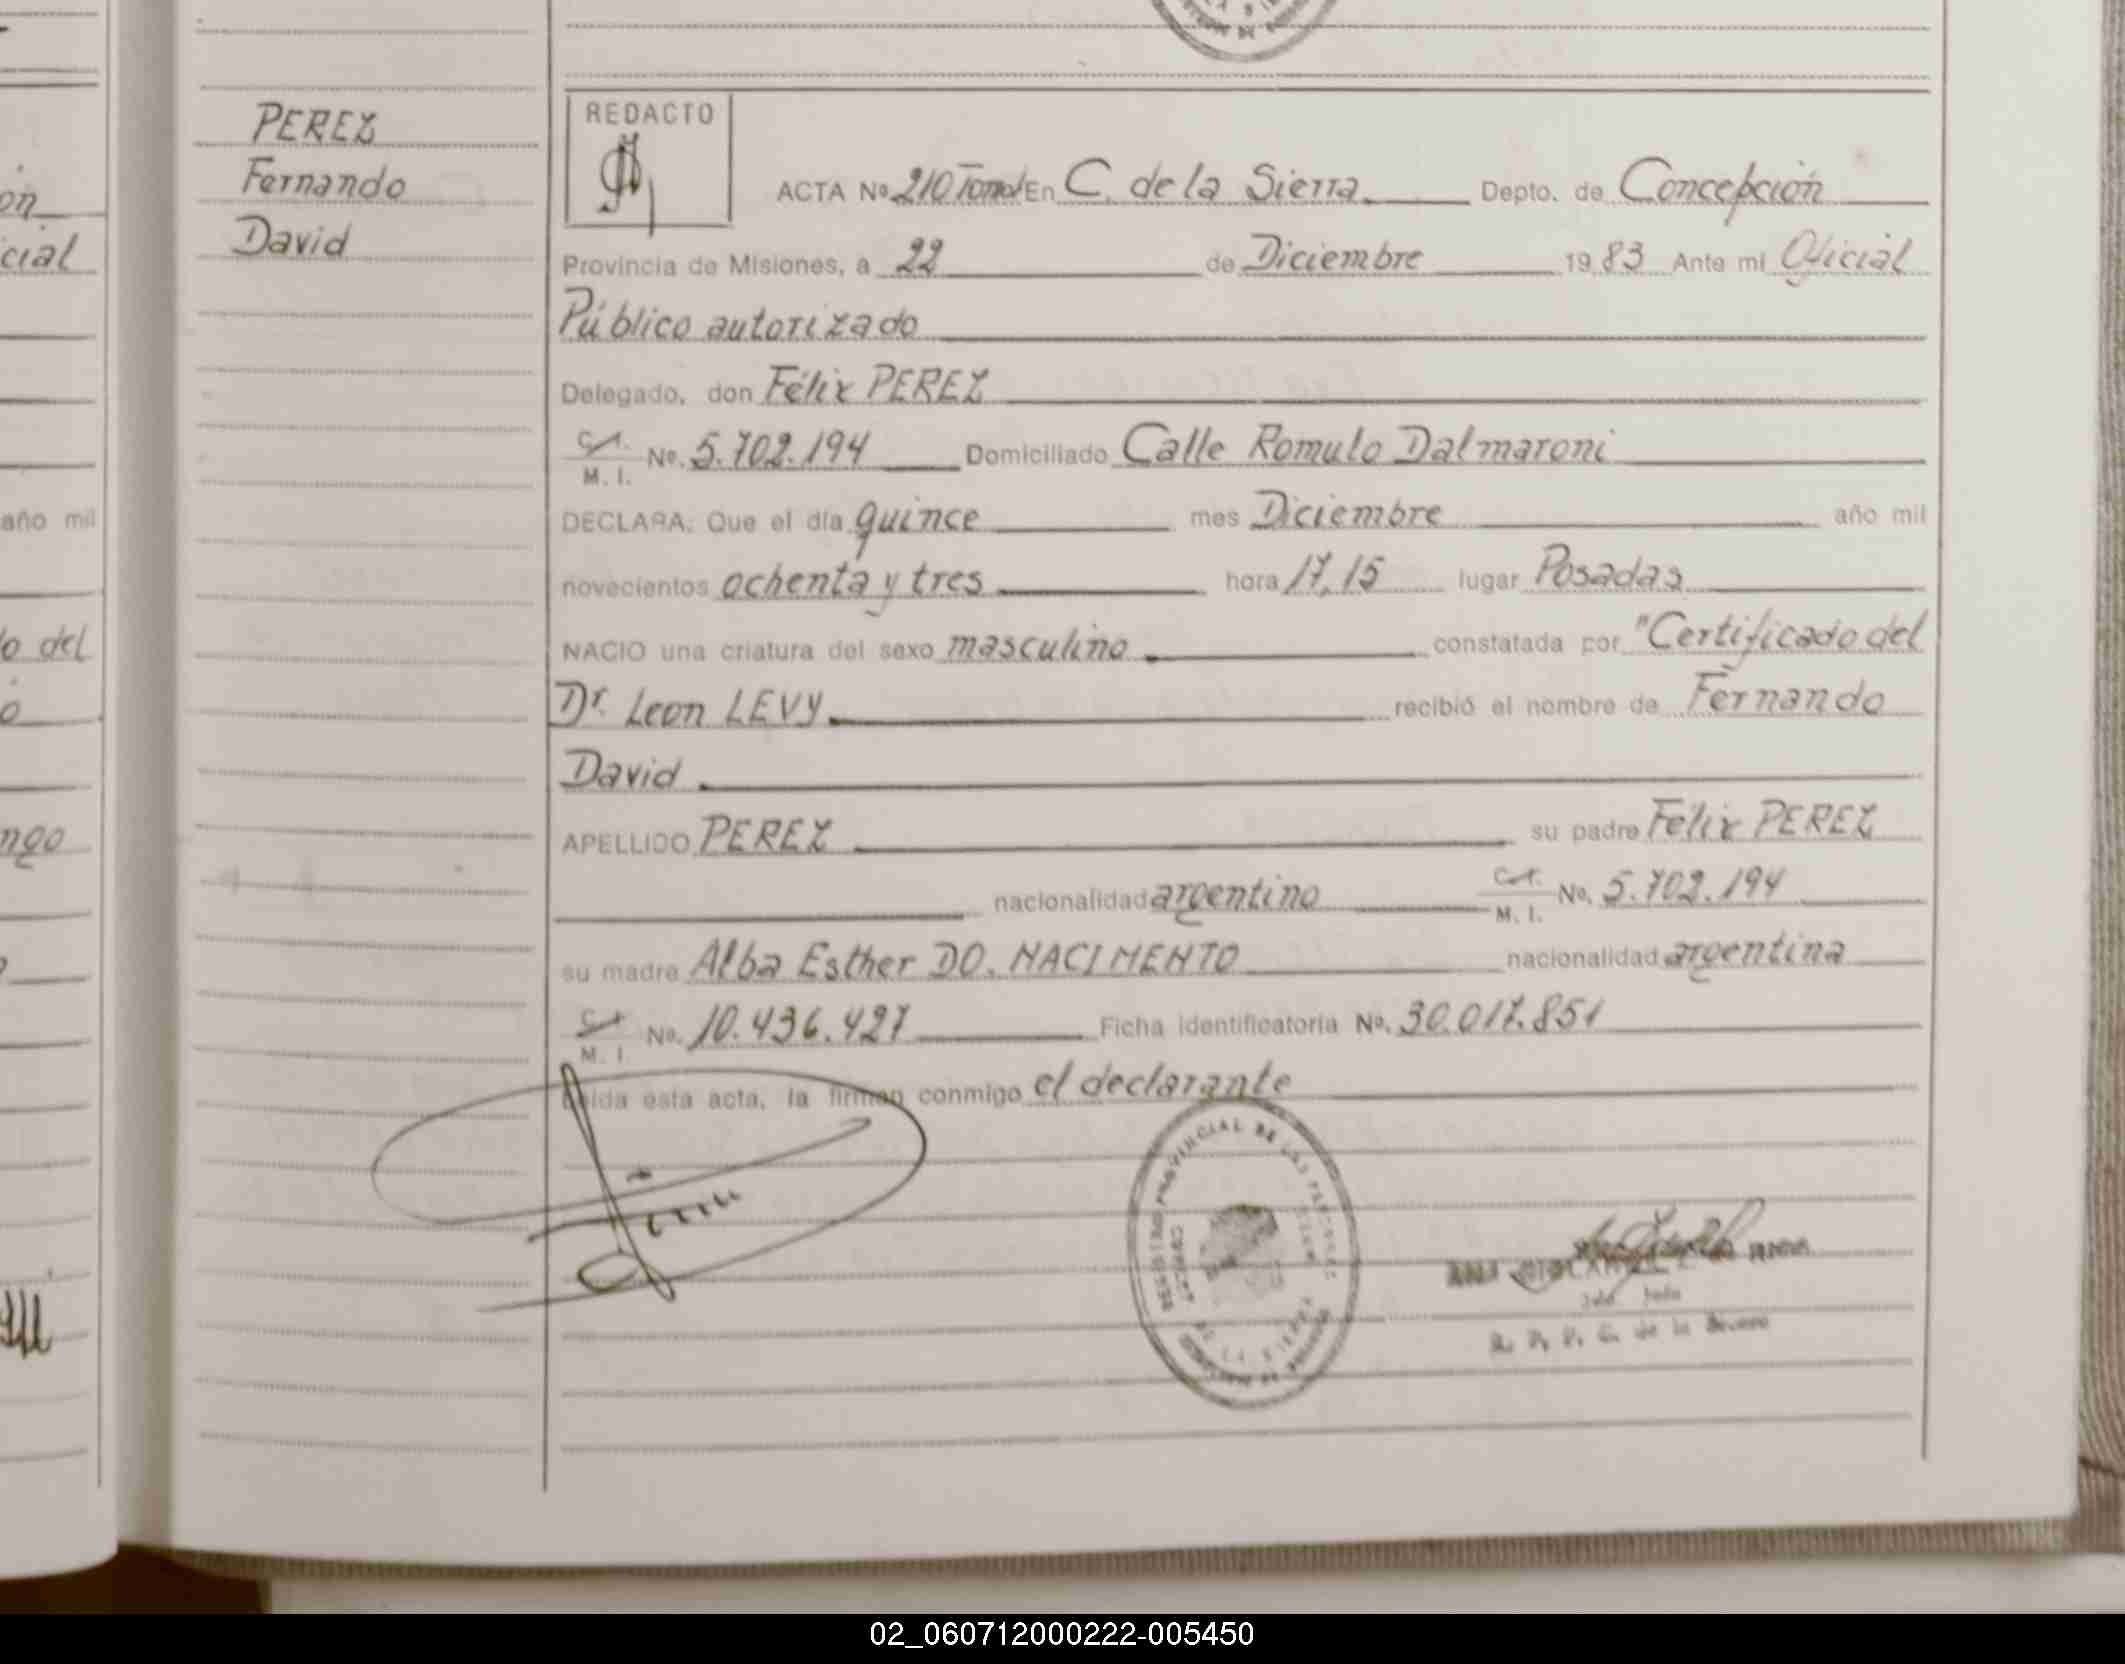 PEREZ
Fernando
David
REDACTO
ACTA Nº 210 Tomo I En C. de la Sierra Depto. de Concepción
Provincia de Misiones, a 22 de Diciembre 1983 Ante mi Oficial
Público autorizado
Delegado, don Félix PEREZ
C.I. M.I. Nº. 5.702.194 Domiciliado Calle Romulo Dalmaroni
DECLARA: Que el día quince mes Diciembre año mil
novecientos ochenta y tres hora 17,15 lugar Posadas
NACIO una criatura del sexo masculino constatada por "Certificado del
Dr. Leon LEVY recibió el nombre de Fernando
David
APELLIDO PEREZ su padre Félix PEREZ
nacionalidad argentino C.I. M.I. Nº. 5.702.194
su madre Alba Esther DO. NACIMENTO nacionalidad argentina
C.I. M.I. Nº. 10.436.427 Ficha identificatoria Nº. 30.017.851
Leida esta acta, la firman conmigo el declarante
REGISTRO PROVINCIAL DE LAS PERSONAS
de la Sierra
on
cial
año mil
o del
o
ngo
02_060712000222-005450